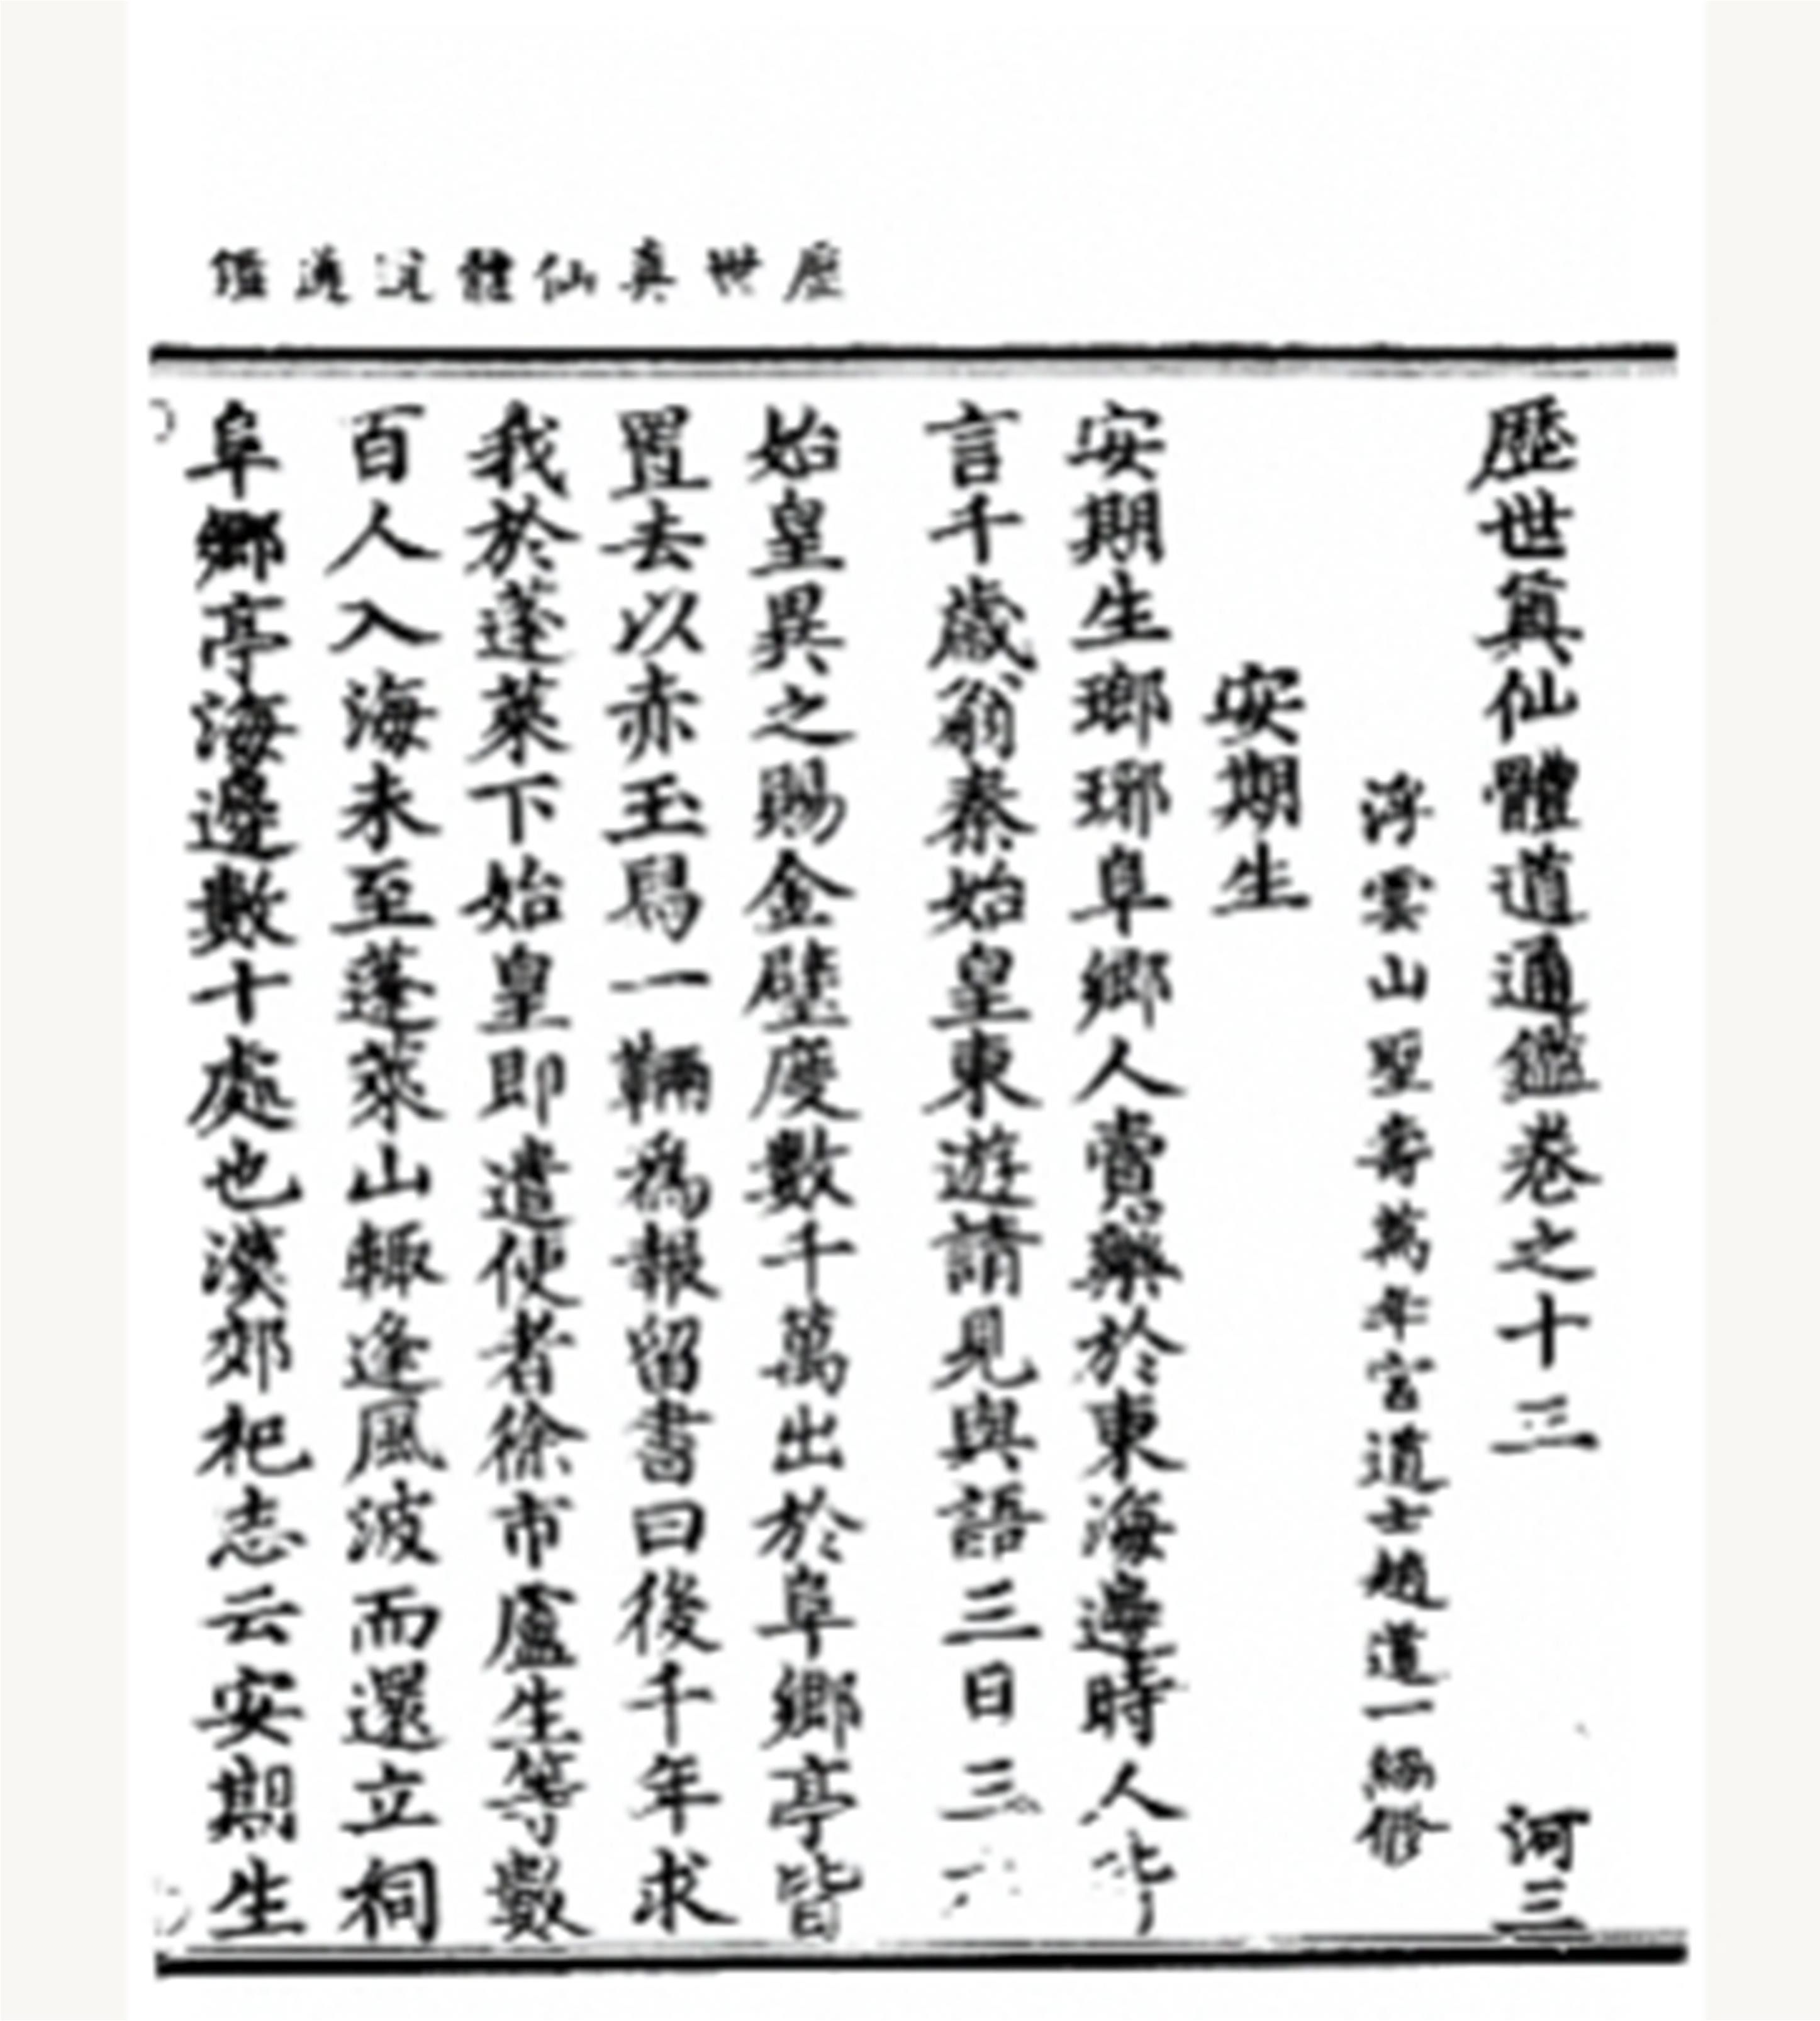 歷世真仙體道通鑑
歷世眞仙體道通鑑卷之十三 河三
浮雲山聖壽萬年宮道士趙道一編修
安期生
安期生瑯琊阜鄉人賣藥於東海邊時人皆
言千歲翁秦始皇東遊請見與語三日三
始皇異之賜金璧度數千萬出於阜鄉亭皆
置去以赤玉舄一輛為報留書曰後千年求
我於蓬萊下始皇即遣使者徐市盧生等數
百人入海未至蓬萊山輒逢風波而還立祠
阜鄉亭海邊數十處也漢郊祀志云安期生